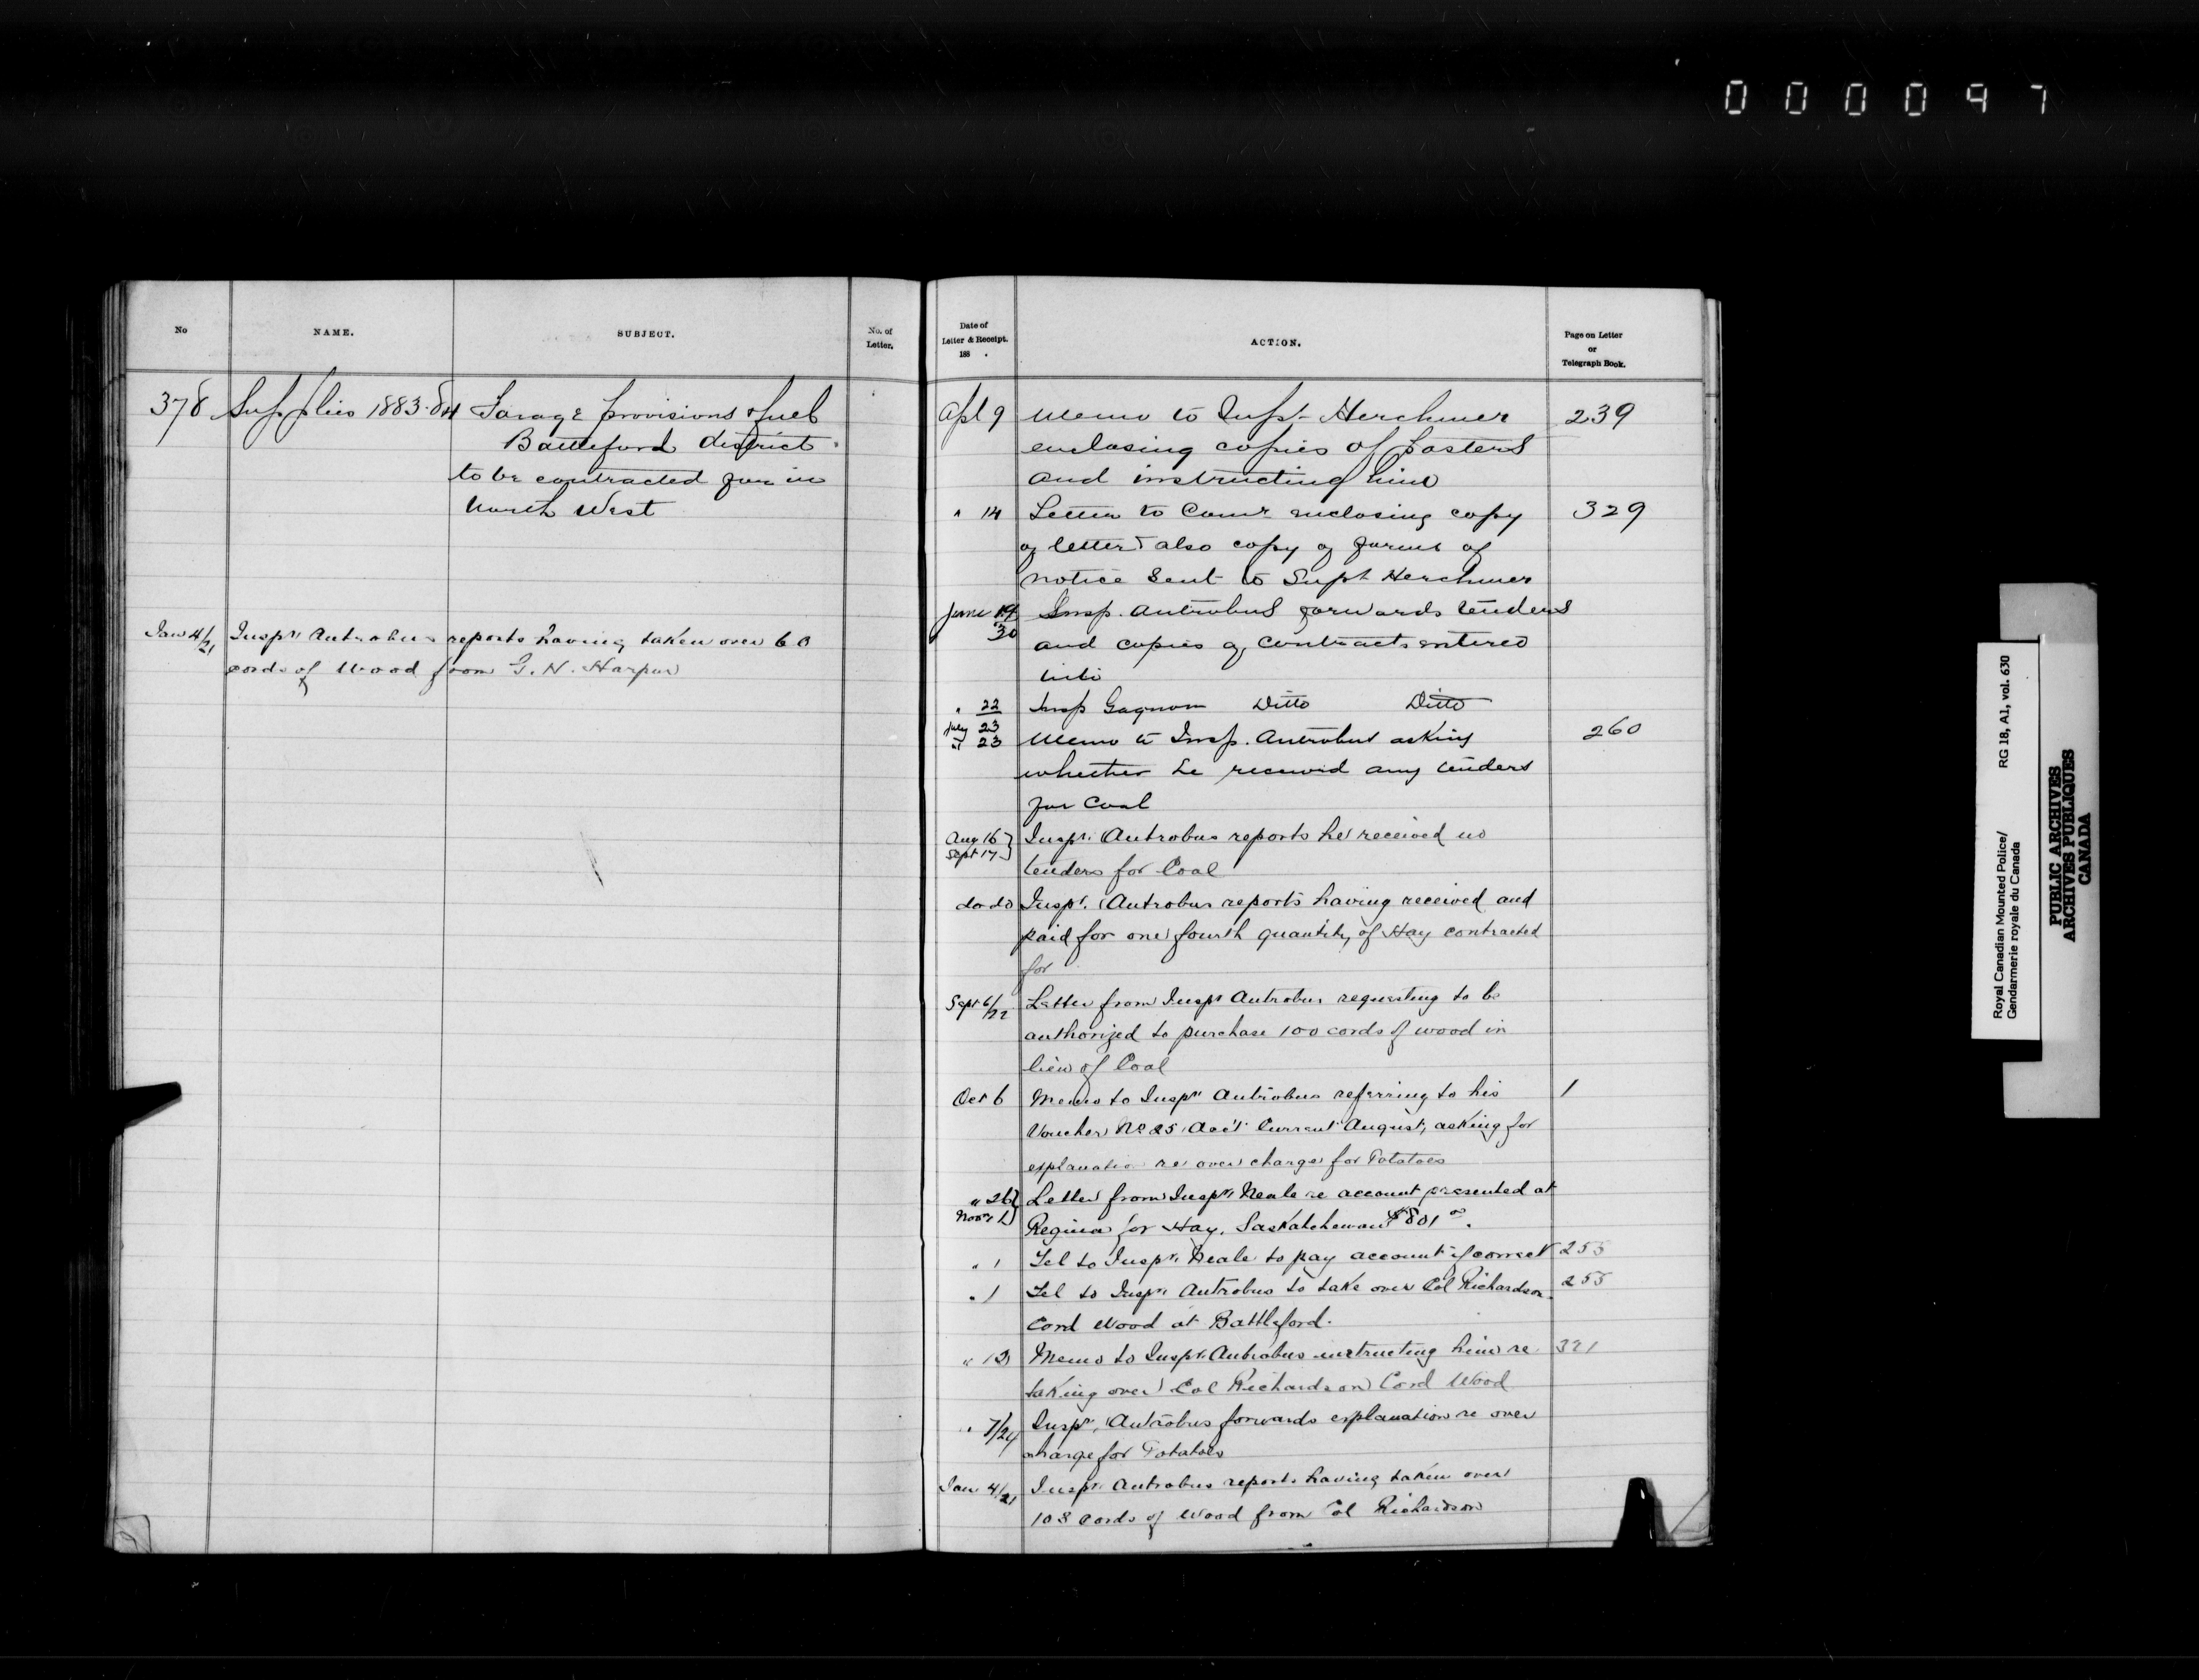 000097
No
NAME.
SUBJECT.
No. of
Letter.
378 Supplies 1883-84 Forage provisions & fuel
Battleford district
to be contracted for in
North West
Jan 4/21 Inspr Antrobus reports having taken over 60
cords of Wood from G. N. Harpur
Date of
Letter & Receipt.
188 .
ACTION.
Page on Letter
or
Telegraph Book.
Apl 9 Memo to Supt Herchmer 239
enclosing copies of Posters
and instructing him
" 14 Letter to Comr enclosing copy 329
of letter & also copy of forms of
notice sent to Supt Herchmer
June 19 Insp. Antrobus forwards tenders
30 and copies of contracts entered
into
" 22 Insp Gagnon Ditto Ditto
July 23
" 23 Memo to Insp. Antrobus asking 260
whether he received any tenders
for Coal
Aug 16 Inspr. Antrobus reports he received no
Sept 17 tenders for Coal
do do Inspr. Antrobus reports having received and
paid for one fourth quantity of Hay contracted
for
Sept 6/22 Letter from Inspr Antrobus requesting to be
authorized to purchase 100 cords of wood in
lieu of Coal
Oct 6 Memo to Inspr Antrobus referring to his 1
Voucher No 25 Acc't Current August, asking for
explanation re over charge for Potatoes
" 26 Letter from Inspr Neale re account presented at
Novr 1 Regina for Hay, Saskatchewan $801 00.
" 1 Tel to Inspr Neale to pay account if correct 255
" 1 Tel to Inspr Antrobus to take over Col Richardson 255
Cord Wood at Battleford.
" 13 Memo to Inspr Antrobus instructing him re 321
taking over Col Richardson Cord Wood
" 7/24 Inspr. Antrobus forwards explanation re over
charge for Potatoes
Jan 4/21 Inspr Antrobus reports having taken over
108 Cords of Wood from Col Richardson
Royal Canadian Mounted Police/ RG 18, A1, vol. 630
Gendarmerie royale du Canada
PUBLIC ARCHIVES
ARCHIVES PUBLIQUES
CANADA